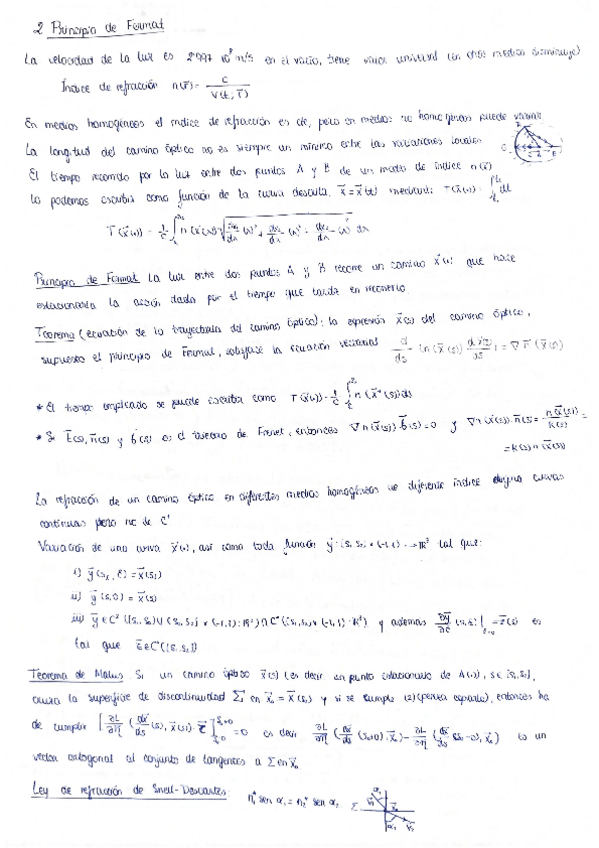 2 Principio de Fermat
La velocidad de la luz es 2'997 10⁸ m/s en el vacío, tiene valor universal (en otros medios disminuye)
Índice de refracción n(r⃗) = c / v(t, r⃗)
En medios homogéneos el índice de refracción es cte, pero en medios no homogéneos puede variar
La longitud del camino óptico no es siempre un mínimo entre las variaciones locales
El tiempo recorrido por la luz entre dos puntos A y B de un medio de índice n(x⃗)
lo podemos escribir como función de la curva descrita, x⃗ = x⃗(λ) mediante T(x⃗(λ)) = ∫ dt
T(x⃗(λ)) = 1/c ∫ n(x⃗(λ)) √( dx₁/dλ (λ)² + dx₂/dλ (λ)² + dx₃/dλ (λ)² ) dλ
Principio de Fermat La luz entre dos puntos A y B recorre un camino x⃗(λ) que hace
estacionaria la acción dada por el tiempo que tarda en recorrerlo.
Teorema (ecuación de la trayectoria del camino óptico): la expresión x⃗(s) del camino óptico,
supuesto el principio de Fermat, satisface la ecuación vectorial d/ds (n(x⃗(s)) dx⃗(s)/ds) = ∇n(x⃗(s))
* El tiempo empleado se puede escribir como T(x⃗(λ)) = 1/c ∫ n(x⃗(s)) ds
* Si t⃗(s), n⃗(s) y b⃗(s) es el triedro de Frenet, entonces ∇n(x⃗(s))·b⃗(s) = 0 y ∇n(x⃗(s))·n⃗(s) = n(x⃗(s))/R(s) =
= k(s) n(x⃗(s))
La refracción de un camino óptico en diferentes medios homogéneos de diferente índice origina curvas
continuas pero no de C¹
Variación de una curva x⃗(s), así como toda función y⃗: [s₁, s₂] × (-1,1) → ℝ³ tal que:
i) y⃗(s₁, ε) = x⃗(s₁)
ii) y⃗(s,0) = x⃗(s)
iii) y⃗ ∈ C² ([s₁, s₀) ∪ (s₀, s₂] × (-1,1); ℝ³) ∩ C⁰([s₁, s₂] × (-1,1); ℝ³) y además ∂y⃗/∂ε (s,ε)|ε=0 = z⃗(s) es
tal que z⃗ ∈ C⁰([s₁, s₂])
Teorema de Malus Si un camino óptico x⃗(s) (es decir un punto estacionario de A(·)), s∈[s₁,s₂],
cruza la superficie de discontinuidad Σ en x⃗₀ = x⃗(s₀) y si se cumple (2), entonces ha
de cumplir [∂L/∂η (dx⃗/ds (s), x⃗(s)) · z⃗] = 0 es decir ∂L/∂η (dx⃗/ds (s₀+0), x⃗₀) - ∂L/∂η (dx⃗/ds (s₀-0), x⃗₀) es un
vector ortogonal al conjunto de tangencias a Σ en x⃗₀
Ley de refracción de Snell-Descartes: n₁ sen α₁ = n₂ sen α₂ Σ